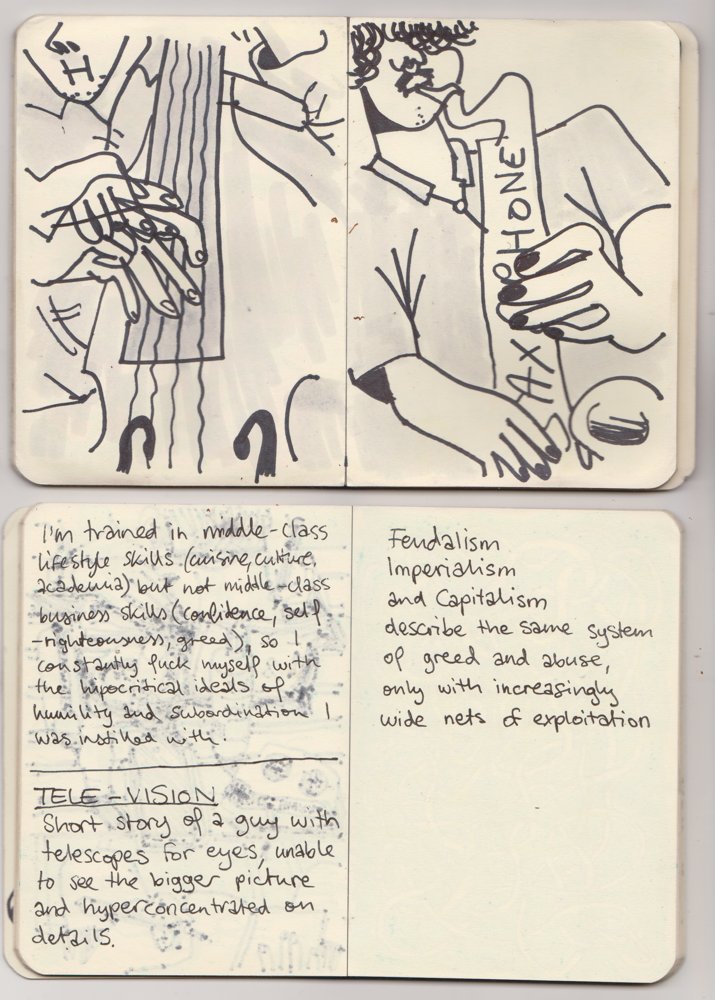 PHONE
AX
I'm trained in middle-class
lifestyle skills (cuisine, culture,
academia) but not middle-class
business skills (confidence, self
-righteousness, greed), so I
constantly fuck myself with
the hipocritical ideals of
humility and subordination I
was instilled with.
TELE-VISION
Short story of a guy with
telescopes for eyes, unable
to see the bigger picture
and hyperconcentrated on
details.
Feudalism
Imperialism
and Capitalism
describe the same system
of greed and abuse,
only with increasingly
wide nets of exploitation